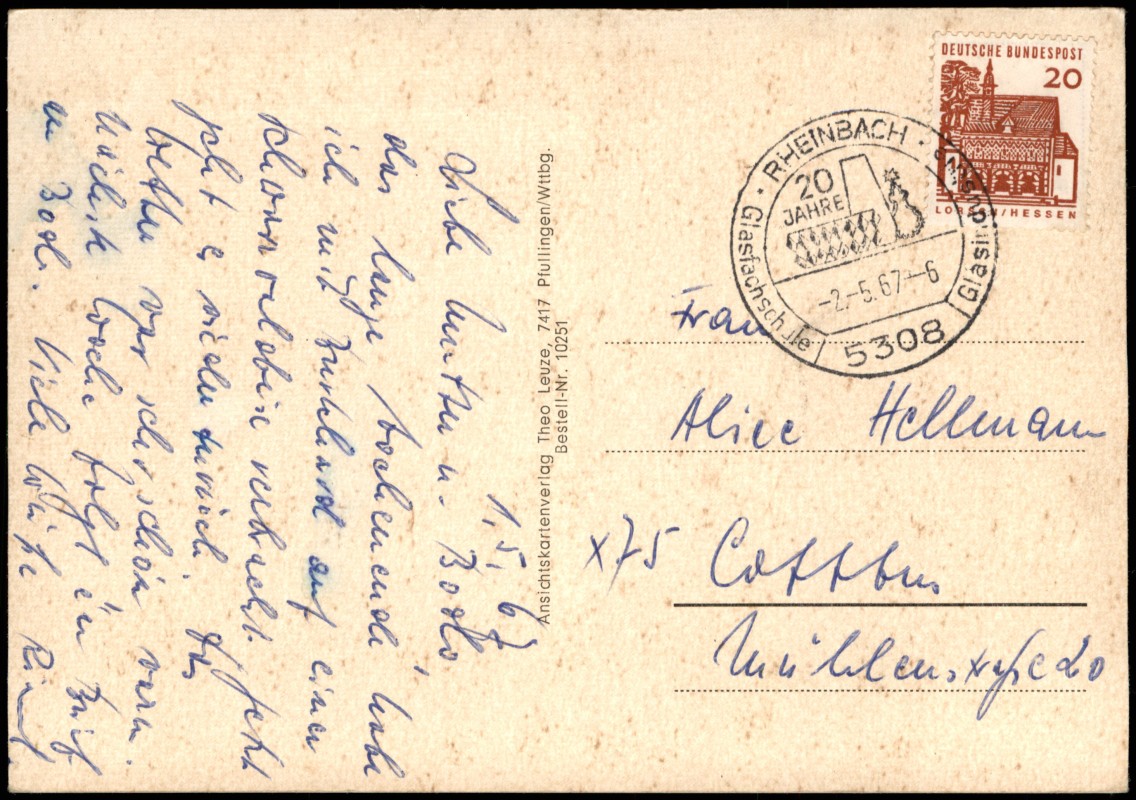 1. 5. 67
Liebe Mutter u. Bodo
das lange Wochenende habe
ich mit Burkhard auf einer
verbracht. Jetzt
geht es wieder zurück. Das
Wetter war sehr schön warm
Nächste Woche folgt ein Brief
an Bodo. Viele Grüße
Ansichtskartenverlag Theo Leuze, 7417 Pfullingen/Wttbg.
Bestell-Nr. 10251
DEUTSCHE BUNDESPOST
20
LORSCH/HESSEN
RHEINBACH
20
JAHRE
Glasfachschule
-2.-5.67--6
5308
Frau
Alice Hellmann
X75 Cottbus
Mühlenstraße 20